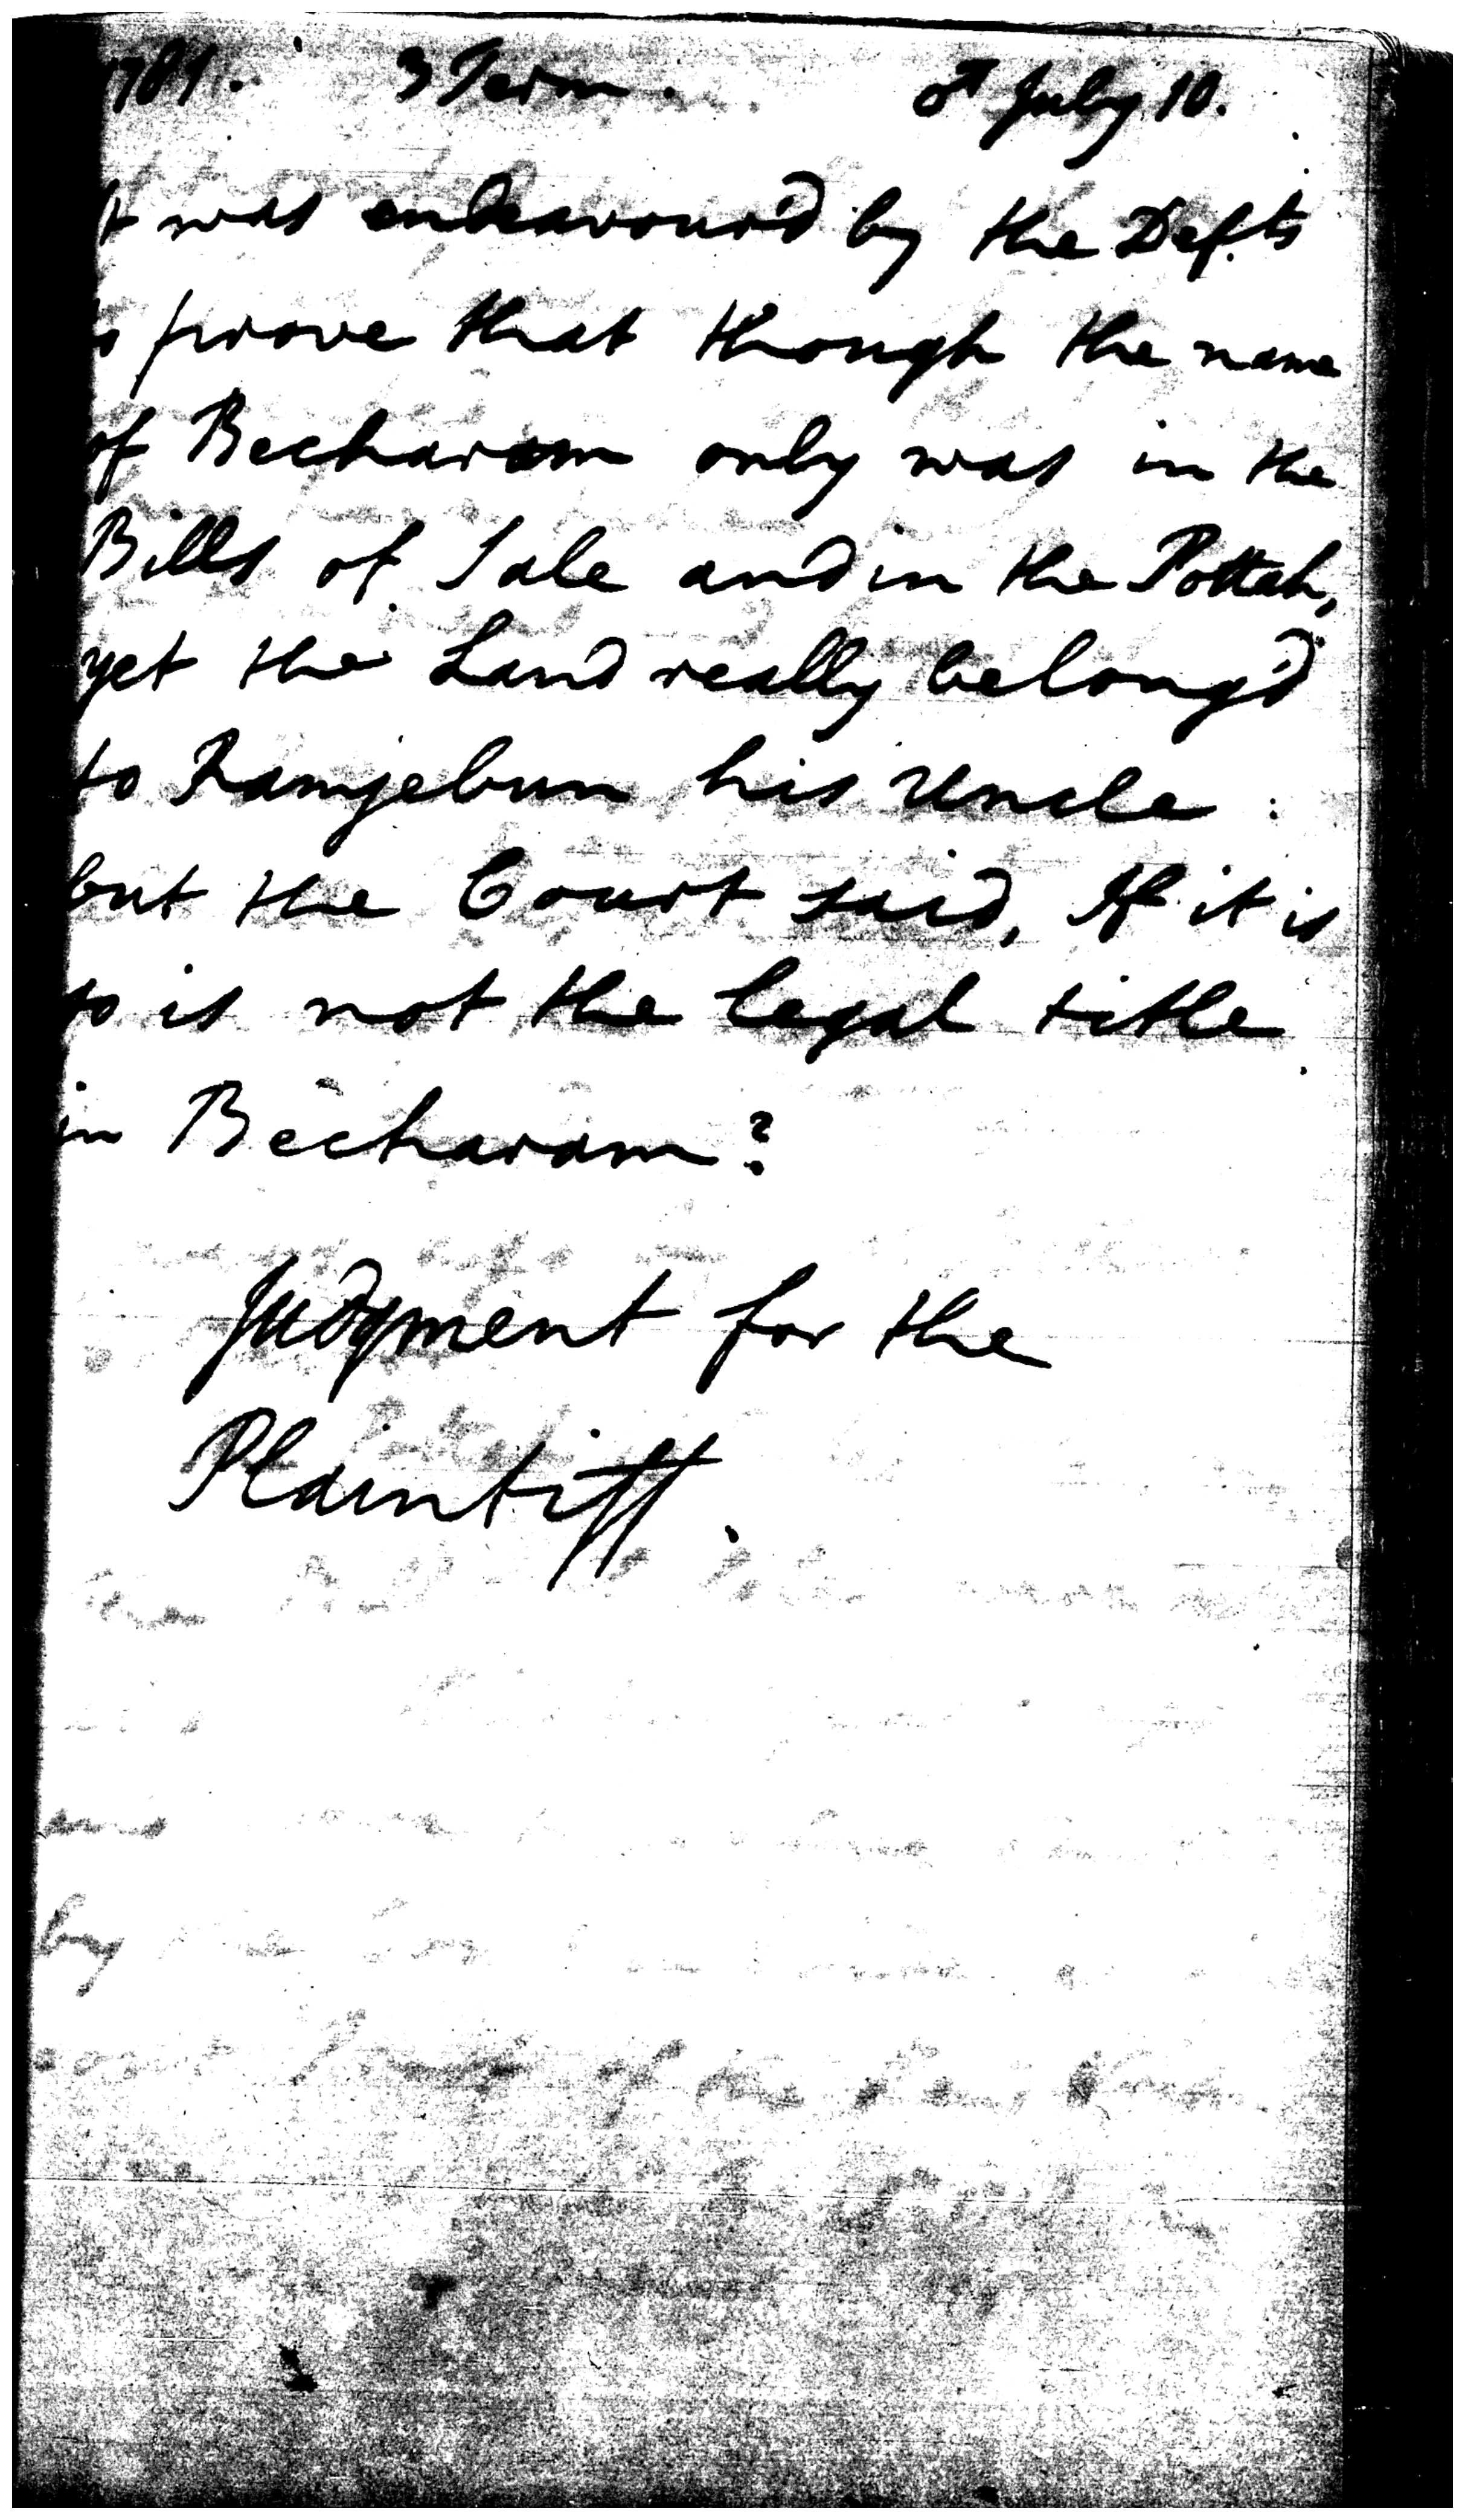 1781. 3 Term. ♂ July 10.
It was endeavour'd by the Defts
to prove that though the name
of Becharam only was in the
Bills of Sale and in the Pottah,
yet the Land really belong'd
to Ramjebun his Uncle :
but the Court said, If it is
so is not the legal title
in Becharam?
Judgment for the
Plaintiff.